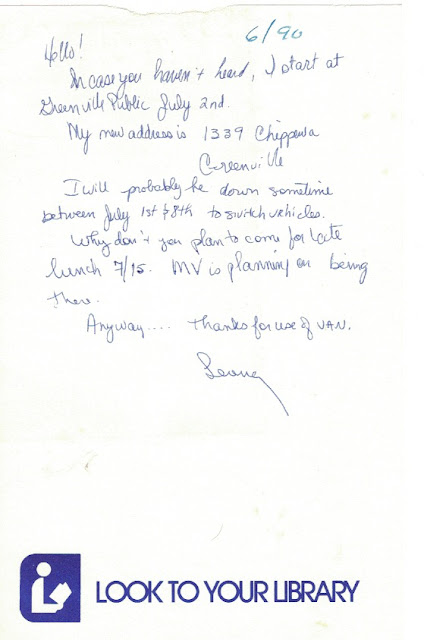 6/90
Hello!
In case you haven't heard, I start at
Greenville Public July 2nd.
My new address is 1339 Chippewa
Greenville
I will probably be down sometime
between July 1st & 8th to switch vehicles.
Why don't you plan to come for late
lunch 7/15. MV is planning on being
there.
Anyway.... Thanks for use of VAN.
LOOK TO YOUR LIBRARY